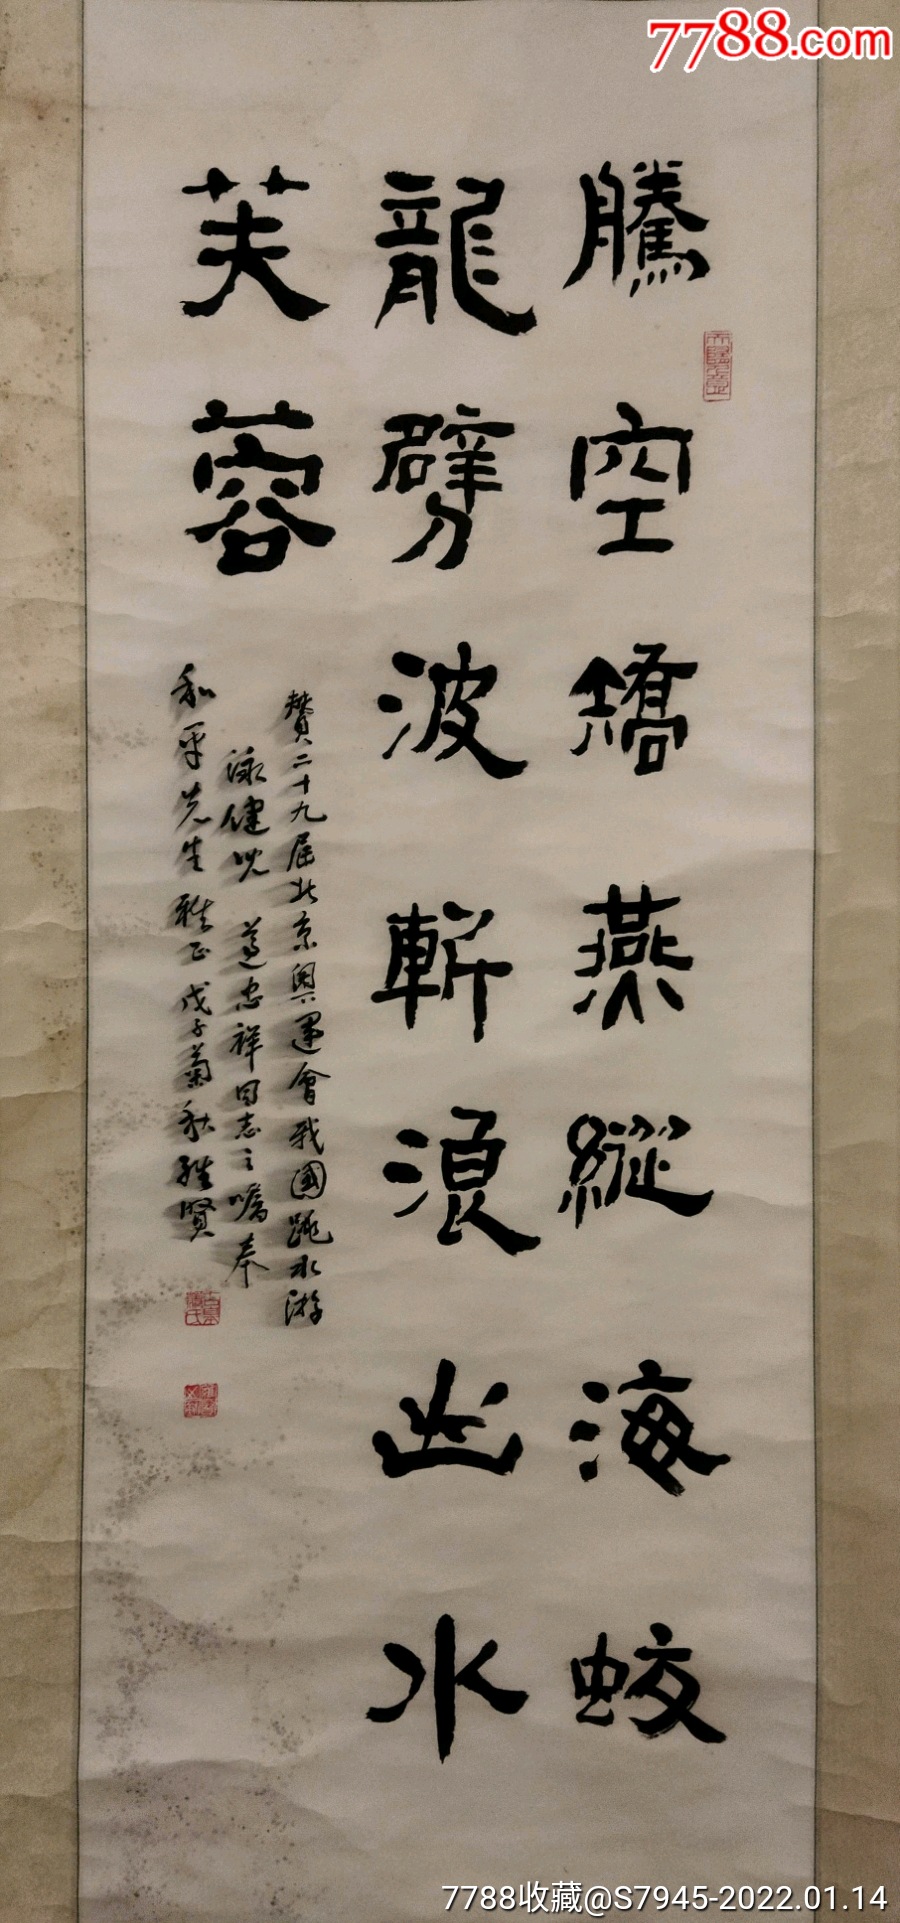 7788.com
騰空矯燕縱海蛟
龍劈波斬浪出水
芙蓉
贊二十九届北京奥運會我國跳水游
泳健兒 遵忠祥同志之囑奉
和平先生雅正戊子菊秋 賢
7788收藏@S7945-2022.01.14